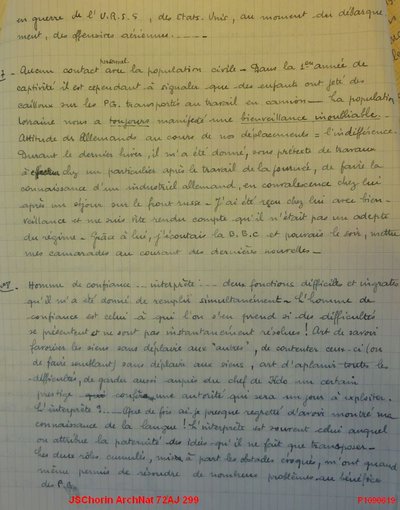 en guerre de l'U.R.S.S, des Etats. Unis, au moment du débarque
ment, des offensives aériennes.----
personnel
7- Aucun contact avec la population civile - Dans la 1ère année de
captivité il est cependant à signaler que des enfants ont jeté des
cailloux sur les P.G. transportés au travail en camion - La population
lorraine nous a toujours manifesté une bienveillance inoubliable.
Attitude des Allemands au cours de nos déplacements = l'indifférence.
Durant le dernier hiver, il m'a été donné, sous prétexte de travaux
à effectuer chez un particulier après le travail de la journée, de faire la
connaissance d'un industriel allemand, en convalescence chez lui
après un séjour sur le front russe - J'ai été reçu chez lui avec bien-
veillance et me suis vite rendu compte qu'il n'était pas un adepte
du régime - Grâce à lui, j'écoutais la B.B.C et pouvais le soir, mettre
mes camarades au courant des dernières nouvelles -
N°8. Homme de confiance -- interprète! -- deux fonctions difficiles et ingrates
qu'il m'a été donné de remplir simultanément - L'homme de
confiance est celui à qui l'on s'en prend si des difficultés
se présentent et ne sont pas instantanément résolues! Art de savoir
favoriser les siens sans déplaire aux "autres", de contenter ceux-ci (ou
de faire semblant) sans déplaire aux siens, art d'aplanir toutes les
difficultés, de garder aussi auprès du chef de Kdo un certain
prestige qui confère une autorité qui sera un jour à exploiter.
L'interprète? -- Que de fois ai-je presque regretté d'avoir montré ma
connaissance de la langue! L'interprète est souvent celui auquel
on attribue la paternité des idées qu'il ne fait que transposer -
Ces deux rôles cumulés, mis à part les obstacles, m'ont quand
même permis de résoudre de nombreux problèmes au bénéfice
des P.G.
JSChorin ArchNat 72AJ 299
P1090619